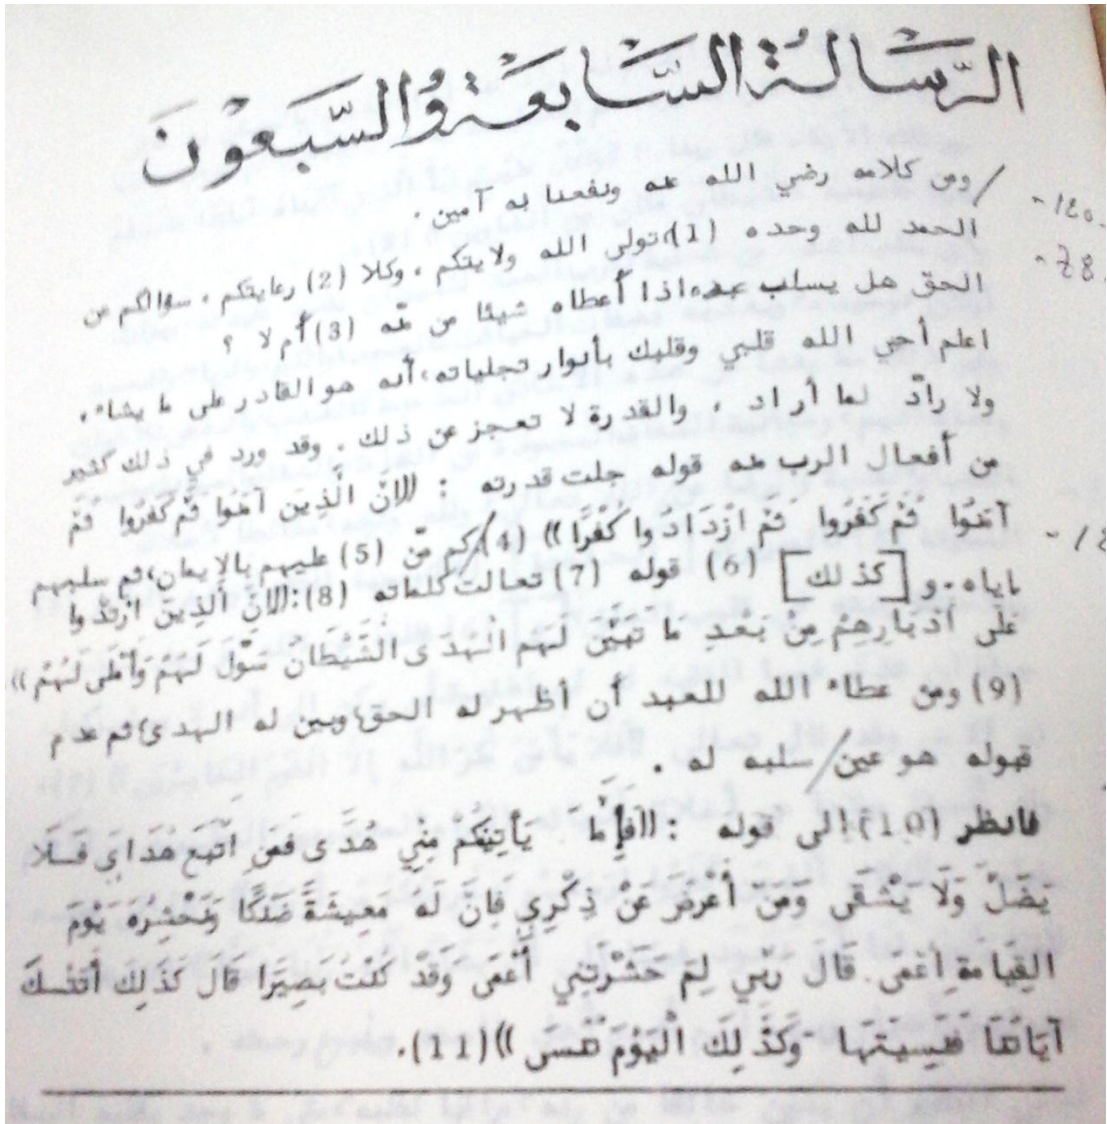 الرّسَالَةُ السَّابِعَةُ وَالسَّبْعُونَ
/ومن كلامه رضي الله عنه ونفعنا به آمين .
الحمد لله وحده (1)، تولى الله ولايتكم ، وكلا (2) رعايتكم ، سؤالكم عن
الحق هل يسلب عبده اذا أعطاه شيئا من منه (3) أم لا ؟
اعلم أحي الله قلبي وقلبك بأنوار تجلياته، أنه هو القادر على ما يشاء ،
ولا رادّ لما أراد ، والقدرة لا تعجز عن ذلك . وقد ورد في ذلك كثير
من أفعال الرب منه قوله جلت قدرته : ((إِنَّ الَّذِينَ آمَنُوا ثُمَّ كَفَرُوا ثُمَّ
آمَنُوا ثُمَّ كَفَرُوا ثُمَّ ازْدَادُوا كُفْرًا)) (4)/كم منّ (5) عليهم بالايمان، ثم سلبهم
اياه . و [كذلك] (6) قوله (7) تعالت كلماته (8): ((إِنَّ الَّذِينَ ارْتَدُّوا
عَلَى أَدْبَارِهِمْ مِنْ بَعْدِ مَا تَبَيَّنَ لَهُمْ الْهُدَى الشَّيْطَانُ سَوَّلَ لَهُمْ وَأَمْلَى لَهُمْ))
(9) ومن عطاء الله للعبد أن أظهر له الحق، وبين له الهدى، ثم عدم
قبوله هو عين/سلبه له .
فانظر (10) إلى قوله : ((فَإِمَّا يَأْتِيَنَّكُمْ مِنِّي هُدًى فَمَنِ اتَّبَعَ هُدَايَ فَلَا
يَضِلُّ وَلَا يَشْقَى وَمَنْ أَعْرَضَ عَنْ ذِكْرِي فَإِنَّ لَهُ مَعِيشَةً ضَنْكًا وَنَحْشُرُهُ يَوْمَ
القِيَامَةِ أَعْمَى قَالَ رَبِّي لِمَ حَشَرْتَنِي أَعْمَى وَقَدْ كُنْتُ بَصِيرًا قَالَ كَذَلِكَ أَتَتْكَ
آيَاتُنَا فَنَسِيتَهَا وَكَذَلِكَ الْيَوْمَ تُنْسَى)) (11).